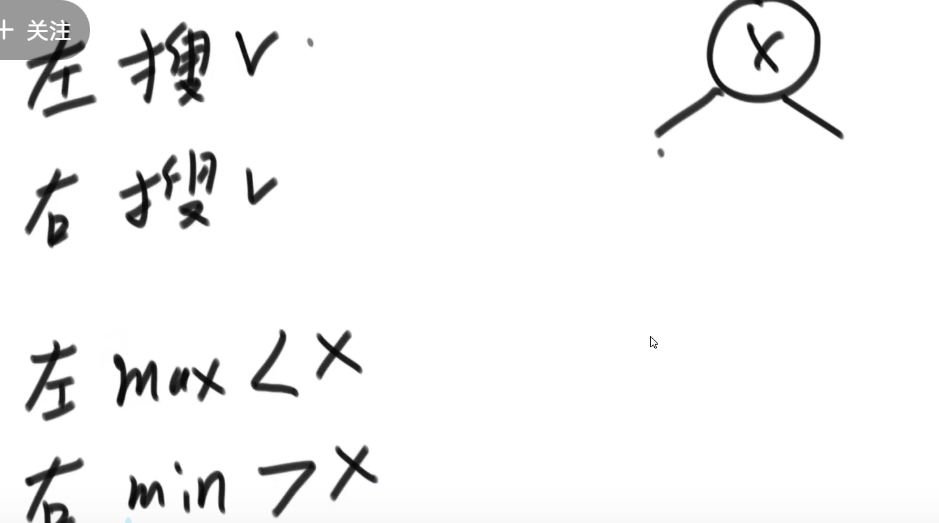 + 关注
左 搜 √
X
右 搜 √
左 max < X
右 min > X